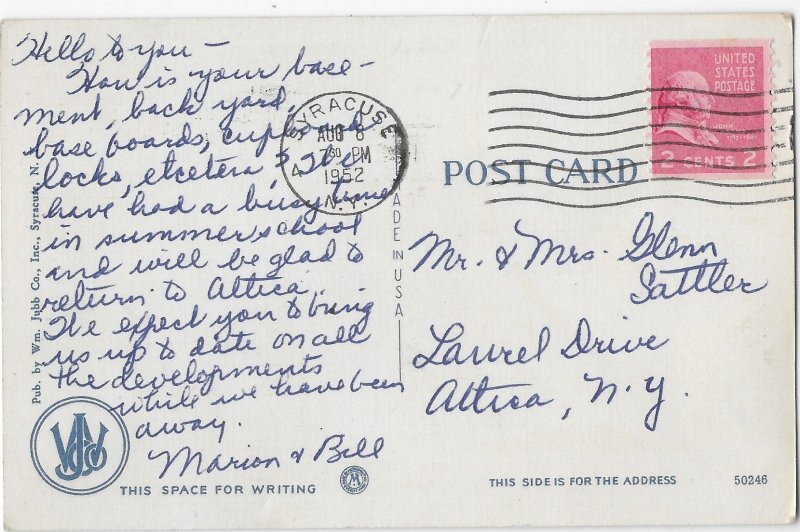 Hello to you —
How is your base-
ment, back yard,
base boards, cupboard
locks, etcetera? We
have had a busy time
in summer school
and will be glad to
return to Attica.
We expect you to bring
us up to date on all
the developments
while we have been
away.
Marion & Bill
THIS SPACE FOR WRITING
Pub. by Wm. Jubb Co., Inc., Syracuse, N.
SYRACUSE
AUG 8
4 30 PM
1952
N.Y.
MADE IN USA
POST CARD
UNITED
STATES
POSTAGE
2 CENTS 2
Mr. & Mrs. Glenn
Sattler
Laurel Drive
Attica, N.Y.
THIS SIDE IS FOR THE ADDRESS
50246